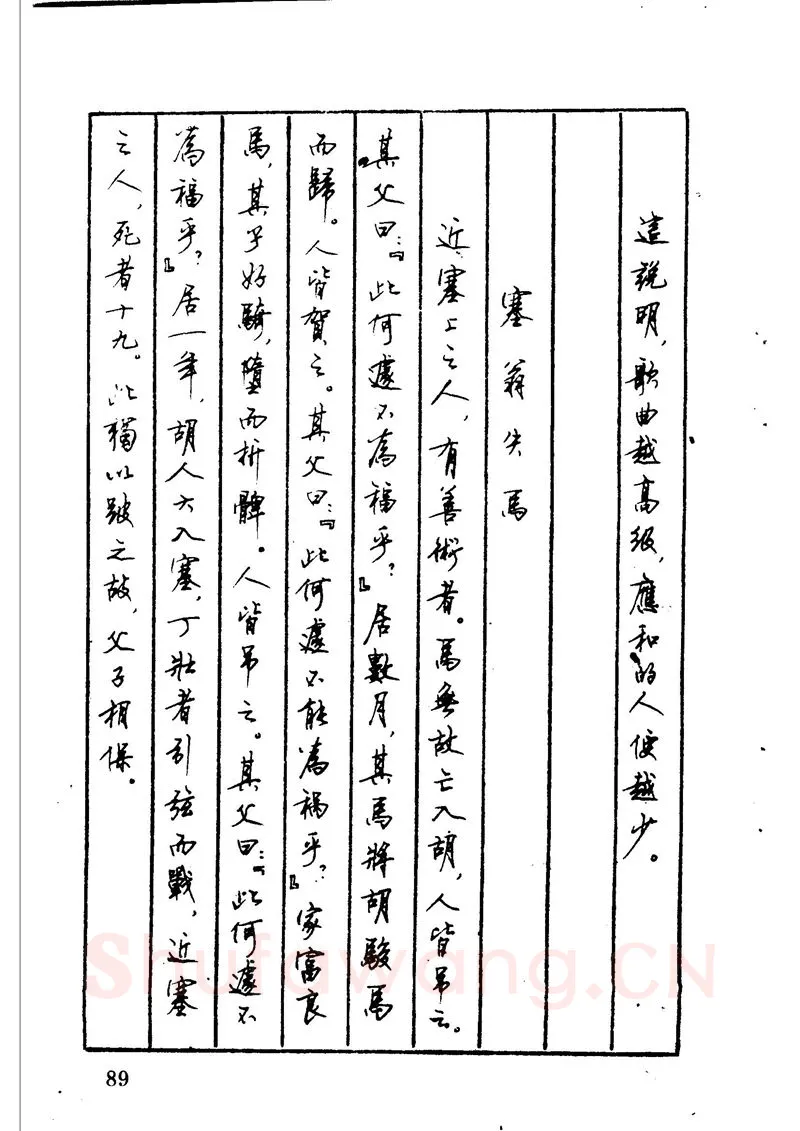 這說明,歌曲越高級,應和的人便越少。
塞翁失馬
近塞上之人,有善術者。馬無故亡入胡,人皆吊之。
其父曰:『此何遽不為福乎?』居數月,其馬將胡駿馬
而歸。人皆賀之。其父曰:『此何遽不能為禍乎?』家富良
馬,其子好騎,墮而折髀。人皆吊之。其父曰:『此何遽不
為福乎?』居一年,胡人大入塞,丁壯者引弦而戰,近塞
之人,死者十九。此獨以跛之故,父子相保。
89
Shufawang.CN